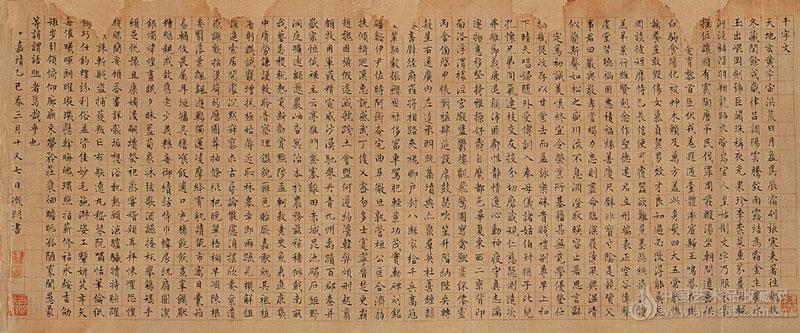 千字文
天地玄黄宇宙洪荒日月盈昃辰宿列張寒来暑往秋收
冬藏閏餘成歲律吕調陽雲騰致雨露結為霜金生麗水
玉出崑岡劍號巨闕珠稱夜光果珍李柰菜重芥薑海鹹
河淡鱗潛羽翔龍師火帝鳥官人皇始制文字乃服衣裳
推位讓國有虞陶唐弔民伐罪周發殷湯坐朝問道垂拱
平章愛育黎首臣伏戎羌遐邇壹體率賓歸王鳴鳳在樹
白駒食場化被草木賴及萬方蓋此身髮四大五常恭惟
鞠養豈敢毀傷女慕貞絜男效才良知過必改得能莫忘
罔談彼短靡恃己長信使可覆器欲難量墨悲絲染詩讚
羔羊景行維賢剋念作聖德建名立形端表正空谷傳聲
虛堂習聽禍因惡積福緣善慶尺璧非寶寸陰是競資父
事君曰嚴與敬孝當竭力忠則盡命臨深履薄夙興溫凊
似蘭斯馨如松之盛川流不息淵澄取暎容止若思言辭
安定篤初誠美慎終宜令榮業所基籍甚無竟學優登仕
攝職從政存以甘棠去而益詠樂殊貴賤禮別尊卑上和
下睦夫唱婦隨外受傅訓入奉母儀諸姑伯叔猶子比兒
孔懷兄弟同氣連枝交友投分切磨箴規仁慈隱惻造次
弗離節義廉退顛沛匪虧性靜情逸心動神疲守真志滿
逐物意移堅持雅操好爵自縻都邑華夏東西二京背邙
面洛浮渭據涇宮殿盤鬱樓觀飛驚圖寫禽獸畫彩仙靈
丙舍傍啓甲帳對楹肆筵設席鼓瑟吹笙升階納陛弁轉
疑星右通廣內左達承明既集墳典亦聚群英杜稾鍾隸
漆書壁經府羅將相路俠槐卿戶封八縣家給千兵高冠
陪輦驅轂振纓世祿侈富車駕肥輕策功茂實勒碑刻銘
磻溪伊尹佐時阿衡奄宅曲阜微旦孰營桓公匡合濟弱
扶傾綺迴漢惠說感武丁俊乂密勿多士寔寧晉楚更霸
趙魏困橫假途滅虢踐土會盟何遵約法韓弊煩刑起翦
頗牧用軍最精宣威沙漠馳譽丹青九州禹跡百郡秦并
嶽宗恒岱禪主云亭雁門紫塞雞田赤城昆池碣石鉅野
洞庭曠遠綿邈巖岫杳冥治本於農務茲稼穡俶載南畝
我藝黍稷稅熟貢新勸賞黜陟孟軻敦素史魚秉直庶幾
中庸勞謙謹敕聆音察理鑒貌辨色貽厥嘉猷勉其祗植
省躬譏誡寵增抗極殆辱近恥林皋幸即兩疏見機解組
誰逼索居閒處沉默寂寥求古尋論散慮逍遙欣奏累遣
慼謝歡招渠荷的歷園莽抽條枇杷晚翠梧桐早凋陳根
委翳落葉飄颻遊鵾獨運凌摩絳霄耽讀翫市寓目囊箱
易輶攸畏屬耳垣牆具膳餐飯適口充腸飽飫烹宰飢厭
糟糠親戚故舊老少異糧妾御績紡侍巾帷房紈扇圓潔
銀燭煒煌晝眠夕寐藍筍象床弦歌酒讌接杯舉觴矯手
頓足悅豫且康嫡後嗣續祭祀烝嘗稽顙再拜悚懼恐惶
牋牒簡要顧答審詳骸垢想浴執熱願涼驢騾犢特駭躍
超驤誅斬賊盜捕獲叛亡布射遼丸嵇琴阮嘯恬筆倫紙
鈞巧任釣釋紛利俗並皆佳妙毛施淑姿工顰妍笑年矢
每催曦暉朗曜璇璣懸斡晦魄環照指薪修祜永綏吉劭
矩步引領俯仰廊廟束帶矜莊徘徊瞻眺孤陋寡聞愚蒙
等誚謂語助者焉哉乎也
嘉靖乙巳春三月十又七日徵明書